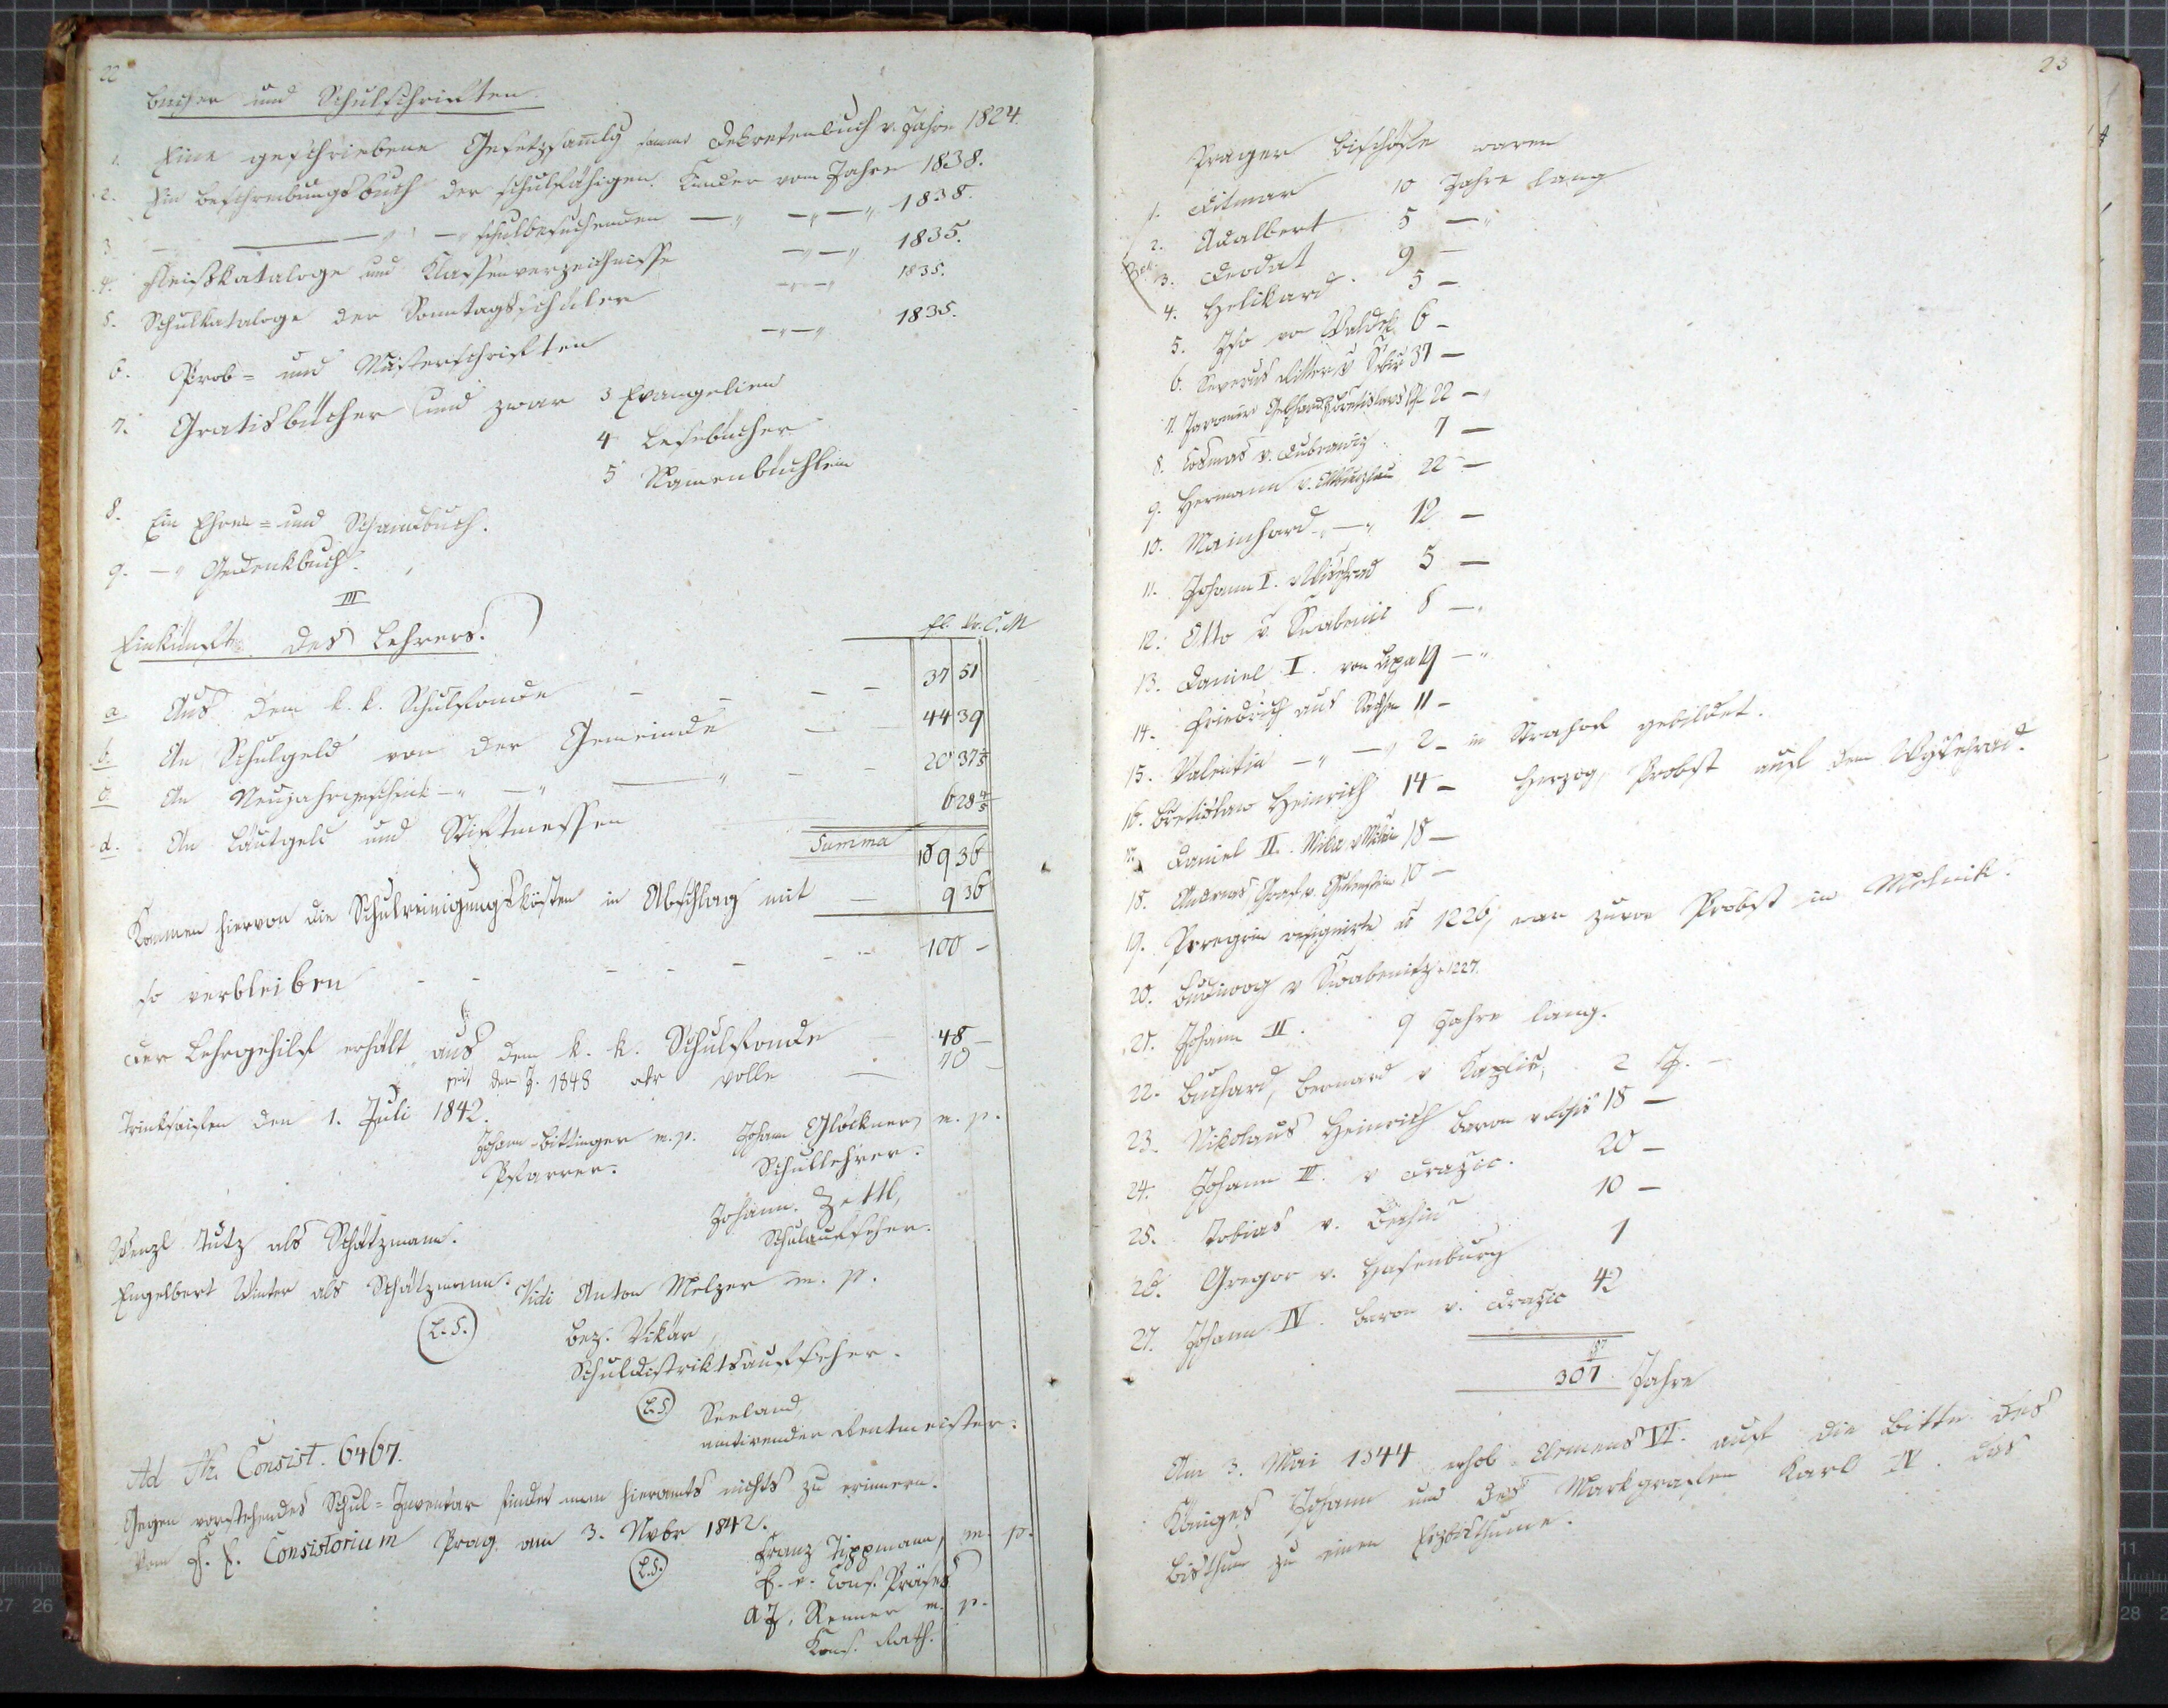 22
Bücher und Schulschriften.
1. Eine geschriebene Gesetzsam̅lg sammt Dekretenbuch v. Jahre 1824.
2. Ein Beschreibungsbuch der schulfähigen Kinder vom Jahre 1838.
3 — " — " schulbesuchenden — " — " — " 1838.
4. Fleißkataloge und Klassenverzeichnisse — " — " 1835.
5. Schulkataloge der Sonntagsschüler — " — " 1835.
6. Prob= und Musterschriften — " — " 1835.
7. Gratisbücher und zwar 3 Evangelien
4 Lesebücher
5 Namenbüchlein
8. Ein Ehren= und Schandbuch.
9. — " Gedenkbuch.
III
Einkünfte des Lehrers.
fl. kr. C.M
a Aus dem k. k. Schulfonde - - - - 37 51
b. An Schulgeld von der Gemeinde - - 44 39
c An Neujahrgeschenk — " — " — " - - 20 37 1/5
d. An Läutgeld und Stiftmessen 6 28 4/5
Summa 109 36
Kommen hievon die Schulreinigungskösten in Abschlag mit — 9 36
so verbleiben - - - - - - - 100 -
Der Lehrgehilf erhält aus dem k. k. Schulfonde — 48 -
seit dem J. 1848 aber volle — 70 -
Trinksaifen den 1. Juli 1842.
Johann Bittinger m. p. Johann Glöckner m. p.
Pfarrer. Schullehrer.
Johann Zettl,
Schulaufseher.
Wenzl Tutz als Schätzmann.
Engelbert Winter als Schätzmann. Vidi Anton Melzer m. p.
(L. S.) Bez. Vikär,
Schuldistriktsaufseher.
(L. S.) Seeland
amtirender Rentmeister.
Ad Nr. Consist. 6467.
Gegen vorstehendes Schul=Inventar findet man hieramts nichts zu erinnern.
Vom F. E. Consistorium Prag am 3. Nvbr 1842.
(L. S.) Franz Tippmann, m. p.
F. e. Cons. Präses
A J. Renner m. p.
Kons. Rath.
23
Prager Bischöfe waren
1. Ditmar 10 Jahre lang
2. Adalbert 5 — "
3. Deodat 9 —
4. Helikard 5 —
5. Izo von Waldek 6 —
6. Severus Ritter v 37 —
7. Jaromir Gebhard 22 — "
8. Cosmas v. Dubrawiz 7 —
9. Hermann v. 22 —
10. Mainhard — " 12 —
11. Johann I. 5 —
12. Otto v. Swabenic 8 — "
13. Daniel I. von Lipa 19 — "
14. Friedrich aus Sachsen 11 —
15. Valentin — " — " 2 — in Strahof gebildet.
16. Břetislaw Heinrich 14 — Herzog, Probst auf dem Wyšehrad.
17. Daniel II. 18 —
18. Andreas, Graf v. Gutenstein 10 —
19. Peregrin resignirte aō 1226, war zuvor Probst in Melnik.
20. Budiwog v Swabenitz. 1227.
21. Johann II. 9 Jahre lang.
22. Buchard, Bernard v Kaplitz, 2 J. —
23. Nikolaus Heinrich Baron v 18 —
24. Johann III. v Drazic. 20 —
25. Tobias v. Bechin 10 —
26. Gregor v. Hasenburg 1
27. Johann IV. Baron v. Drazic 42
307 Jahre
Am 3. Mai 1344 erhob Clemens VI. auf die Bitte des
Königes Johann und des Markgrafen Karl IV. das
Bisthum zu einem Erzbisthume.